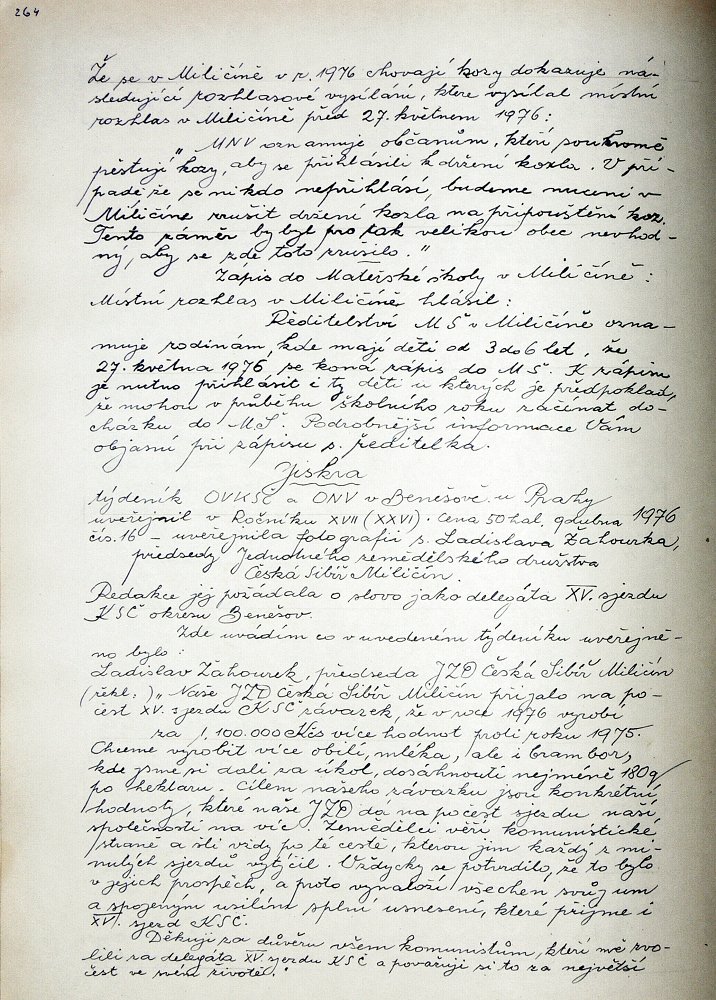 264
Že se v Miličíně v r. 1976 chovají kozy dokazuje ná-
sledující rozhlasové vysílání, které vysílal místní
rozhlas v Miličíně před 27. květnem 1976:
„MNV oznamuje občanům, kteří soukromě
pěstují kozy, aby se přihlásili k držení kozla. V pří-
padě že se nikdo nepřihlásí, budeme nuceni v
Miličíně zrušit držení kozla na připouštění koz.
Tento záměr by byl pro tak velikou obec nevhod-
ný, aby se zde toto zrušilo."
Zápis do Mateřské školy v Miličíně:
Místní rozhlas v Miličíně hlásil:
Ředitelství MŠ v Miličíně ozna-
muje rodinám, kde mají děti od 3 do 6 let, že
27. května 1976 se koná zápis do MŠ. K zápisu
je nutno přihlásit i ty děti u kterých je předpoklad,
že mohou v průběhu školního roku začínat do-
cházku do MŠ. Podrobnější informace Vám
objasní při zápisu s. ředitelka.
Jiskra
týdeník OVKSČ a ONV v Benešově u Prahy
uveřejnil v Ročníku XVII (XXVI). Cena 50 hal, 9 dubna 1976
čís. 16 - uveřejnila fotografii s. Ladislava Žahourka,
předsedy Jednotného zemědělského družstva
Česká Sibiř Miličín.
Redakce jej požádala o slovo jako delegáta XV. sjezdu
KSČ okresu Benešov.
Zde uvádím co v uvedeném týdeníku uveřejně-
no bylo:
Ladislav Žahourek, předseda JZD Česká Sibiř Miličín
(řekl:) „Naše JZD Česká Sibiř Miličín přijalo na po-
čest XV. sjezdu KSČ závazek, že v roce 1976 vyrobí
za 1,100.000 Kčs více hodnot proti roku 1975.
Chceme vyrobit více obilí, mléka, ale i brambor,
kde jsme si dali za úkol, dosáhnouti nejméně 180 q
po hektaru. Cílem našeho závazku jsou konkrétní
hodnoty, které naše JZD dá na počest sjezdu naší
společnosti na víc. Zemědělci věří komunistické
straně a šli vždy po té cestě, kterou jim každý z mi-
nulých sjezdů vytýčil. Vždycky se potvrdilo, že to bylo
v jejich prospěch, a proto vynaloží všechen svůj um
a spojeným úsilím splní usnesení, které přijme i
XV. sjezd KSČ.
Děkuji za důvěru všem komunistům, kteří mě zvo-
lili za delegáta XV. sjezdu KSČ a považuji si to za největší
čest ve svém životě."